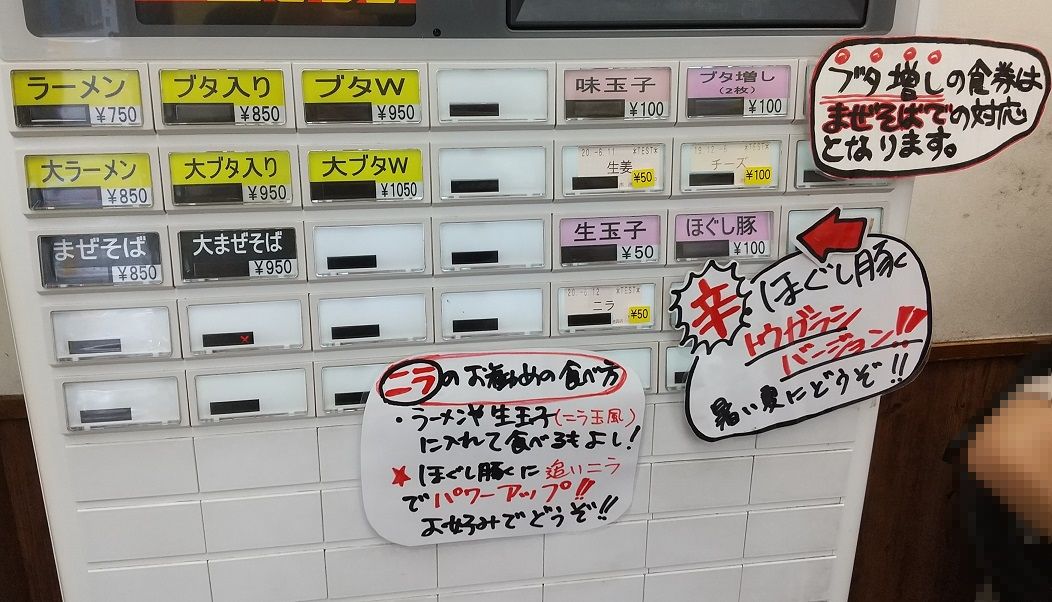 ラーメン
¥750
ブタ入り
¥850
ブタW
¥950
味玉子
¥100
ブタ増し
(2枚)
¥100
大ラーメン
¥850
大ブタ入り
¥950
大ブタW
¥1050
20.-6.11 *TEST*
生姜
¥50
19.12.-6 *TEST*
チーズ
¥100
まぜそば
¥850
大まぜそば
¥950
生玉子
¥50
ほぐし豚
¥100
20.-6.12 *TEST*
ニラ
¥50
ブタ増しの食券は
まぜそばでの対応
となります。
辛
ほぐし豚
トウガラシ
バージョン!!
暑い夏にどうぞ!!
ニラのお勧めの食べ方
・ラーメンや生玉子(ニラ玉風)
に入れて食べるもよし!
★ほぐし豚に追いニラ
でパワーアップ!!
お好みでどうぞ!!